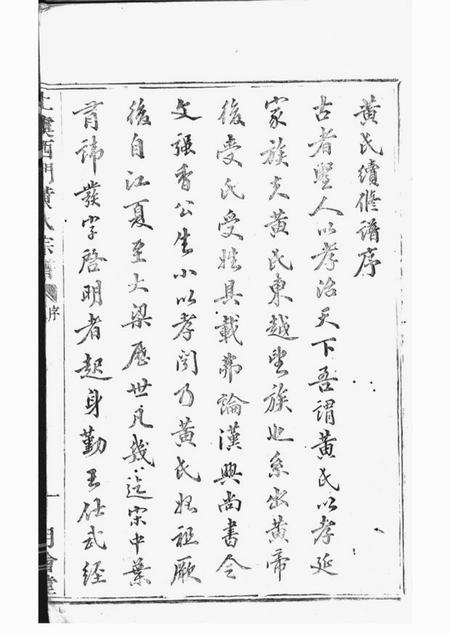 黄氏續修譜序
古者聖人以孝治天下吾謂黄氏以孝延
家族夫黄氏東越望族也系出黄帝
後受氏受姓具載弗論漢興尚書令
文强香公生小以孝聞乃黄氏始祖厥
後自江夏至大梁歷世凡幾迄宋中葉
有諱發字啓明者起身勤王仕武經
上虞西門黄氏宗譜 序 一